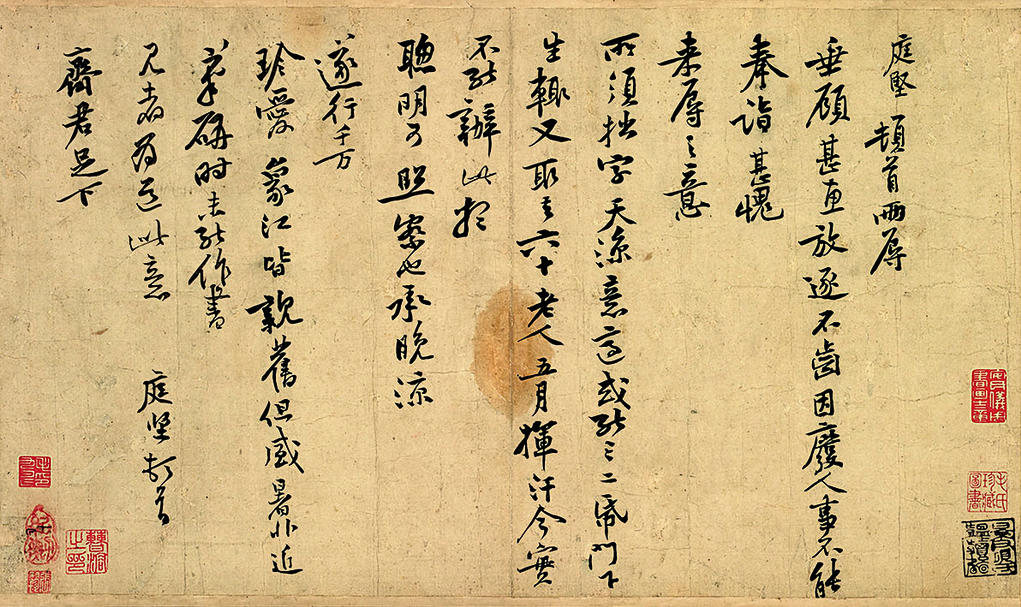 庭堅頓首兩辱
垂顧甚惠放逐不齒因廢人事不能
奉詣甚愧
來辱之意
所須拙字天涼意適或能三二紙門下
生輒又取去六十老人五月揮汗今實
不能辦此想
聰明可照察也承晚涼
遂行千万
珍愛象江皆親舊但盛暑非近
筆硯時未能作書
見者為道此意 庭堅頓首
齊君足下